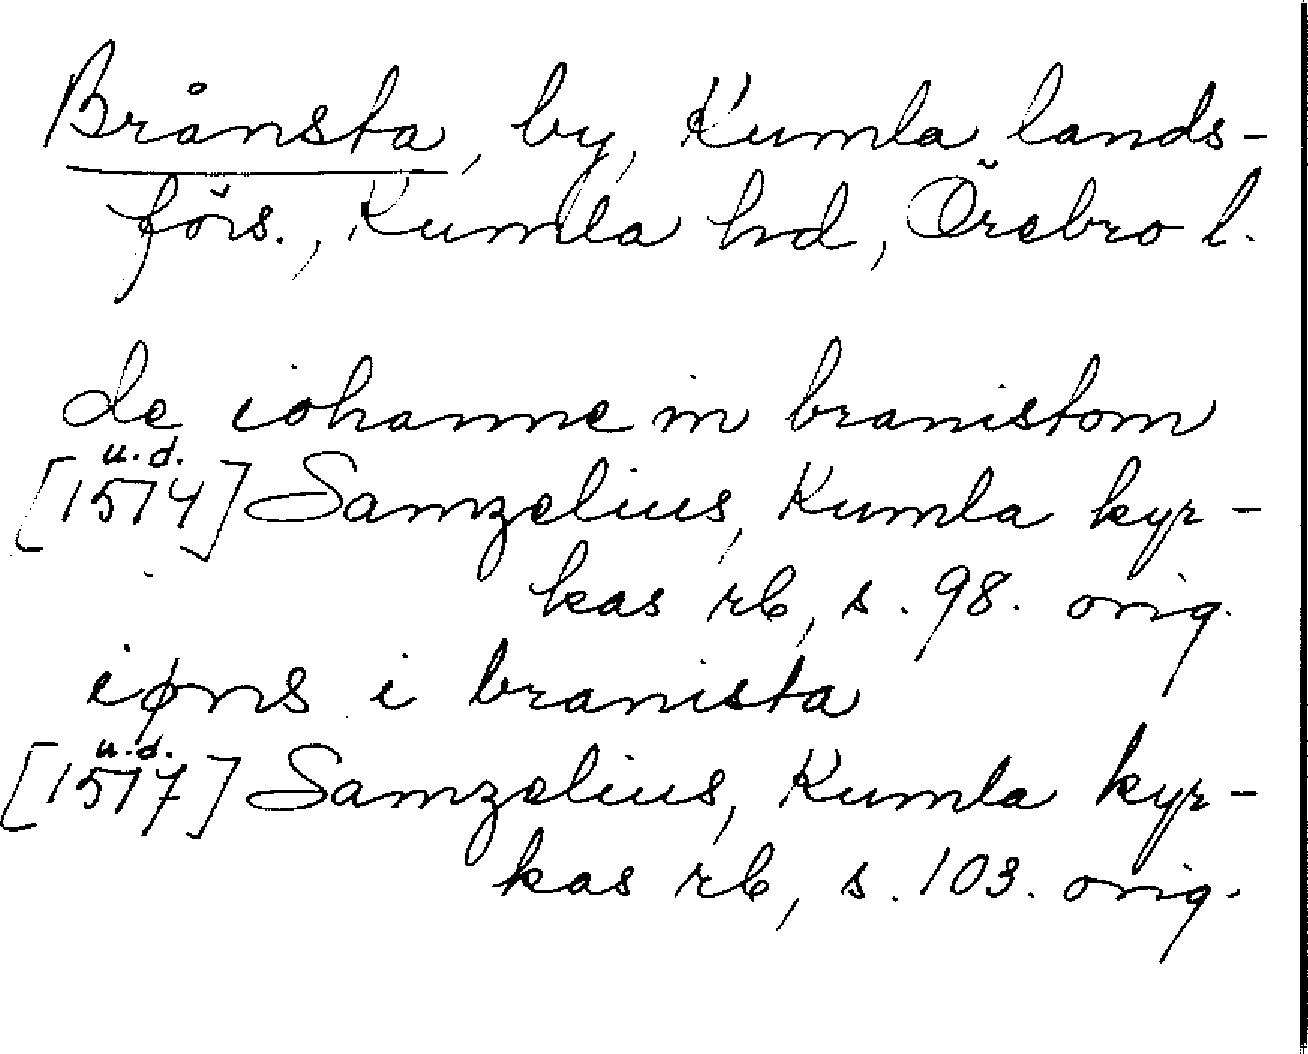 Brånsta, by, Kumla lands-
förs., Kumla hd, Örebro l.
de iohanne in branistom
u.d.
[1514] Samzelius, Kumla kyr-
kas rb, s. 98. orig.
i branista
u.d.
[1517] Samzelius, Kumla kyr-
kas rb, s. 103. orig.